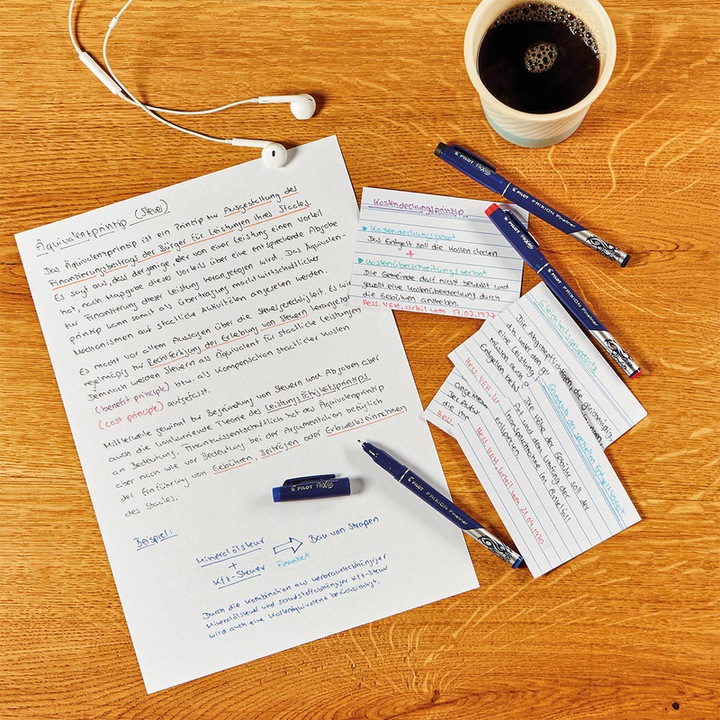 Äquivalenzprinzip (Steuer)
Das Äquivalenzprinzip ist ein Prinzip zur Ausgestaltung des
Finanzierungsbeitrags der Bürger für Leistungen ihres Staates.
Es sagt aus, dass derjenige der von einer Leistung einen Vorteil
hat, nach Maßgabe dieses Vorteils über eine entsprechende Abgabe
zur Finanzierung dieser Leistung herangezogen wird. Das Äquivalenz-
prinzip kann somit als Übertragung marktwirtschaftlicher
Mechanismen auf staatliche Aktivitäten angesehen werden.
Es macht vor allem Aussagen über die Steuergerechtigkeit. Es wird
regelmäßig zur Rechtfertigung der Erhebung von Steuern
Demnach werden Steuern als Äquivalent für staatliche Leistungen
(benefit principle) bzw. als Kompensation staatlicher Kosten
(cost principle) aufgefasst.
Mittlerweile gewinnt zur Begründung von Steuern und Abgaben aber
auch die konkurrierende Theorie des Leistungsfähigkeitsprinzips
an Bedeutung. Finanzwissenschaftlich hat das Äquivalenzprinzip
aber nach wie vor Bedeutung bei der Argumentation bezüglich
der Einführung von Gebühren, Beiträgen oder Erwerbseinnahmen
des Staates.
Beispiel:
Mineralölsteur
+
Kfz-Steuer
Finanziert
Bau von Straßen
Durch die Kombination aus verbrauchsabhängiger
Mineralölsteuer und schadstoffabhängiger Kfz-Steuer
wird auch eine Kostenäquivalenz berücksichtigt.
Kostendeckungsprinzip
Kostendeckungsgebot
Das Entgelt soll die Kosten decken
+
Kostenüberschreitungsverbot
Die Gemeinde darf nicht bewusst und
gewollt eine Kostenüberdeckung durch
die Gebühren anstreben.
Hess. VGH, Urteil vom 17.03.1977
Die Abgabepflichtigen, die gleichmäßig
eine Leistung
müssen auch
Entgelten
Hess. VGH, Urt
Die Höhe der Gebühr soll der
und dem Umfang der
Inanspruchnahme im Einzelfall
entsprechen.
Hess. VGH, Urteil vom
PILOT FRIXION Fineliner
PILOT FRIXION Fineliner
PILOT FRIXION Fineliner
PILOT FRIXION